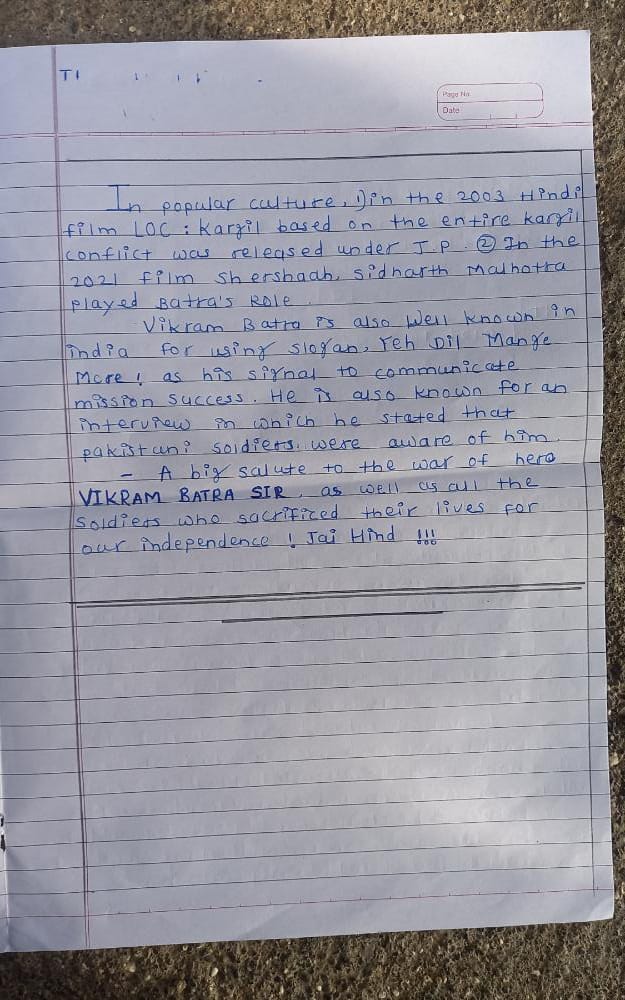 Page No.
Date
In popular culture, 1) in the 2003 Hindi
film LOC : Kargil based on the entire kargil
conflict was released under J.P. ② In the
2021 film Shershaah, Sidharth Malhotra
played Batra's Role.
Vikram Batra is also Well known in
india for using slogan, Yeh Dil Mange
More! as his signal to communicate
mission success. He is also known for an
interview in which he stated that
pakistani soldiers were aware of him.
- A big salute to the war of hero
VIKRAM BATRA SIR, as well as all the
Soldiers who sacrificed their lives for
our independence ! Jai Hind !!!